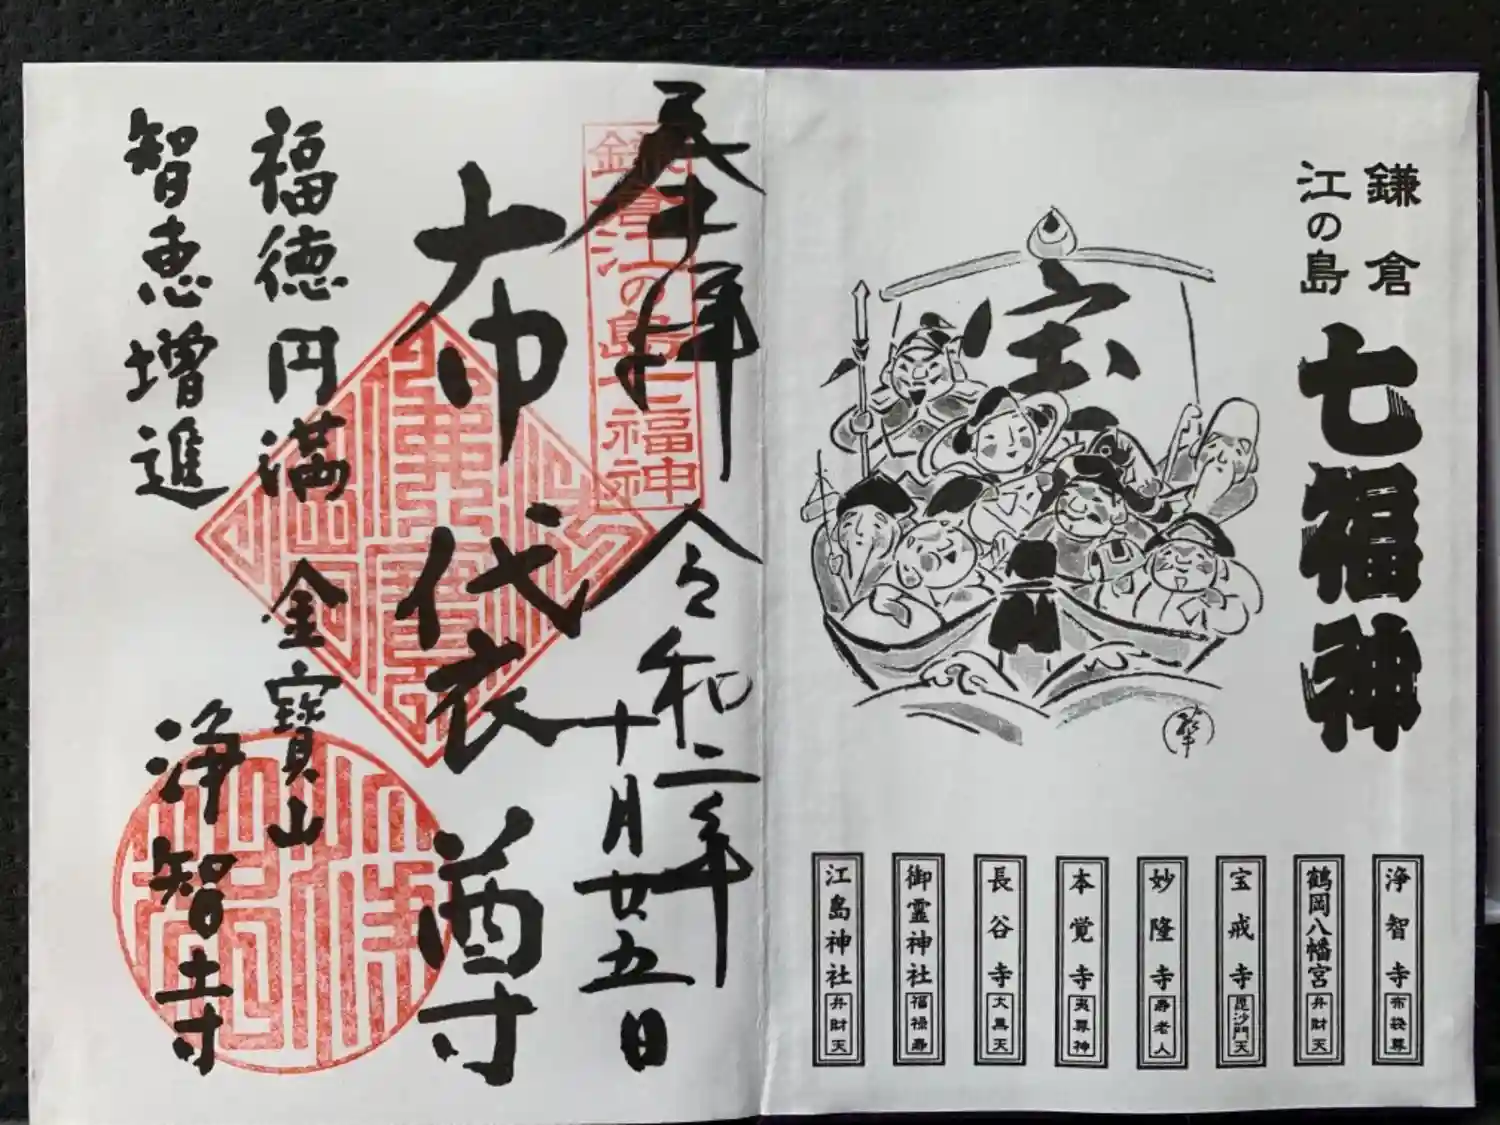 鎌倉
江の島
七福神
宝
浄智寺 布袋尊
鶴岡八幡宮 弁財天
宝戒寺 毘沙門天
妙隆寺 寿老人
本覚寺 夷尊神
長谷寺 大黒天
御霊神社 福禄寿
江島神社 弁財天
奉拝
令和二年
十月廿五日
鎌倉江の島七福神
布袋尊
福徳円満
智恵増進
金寶山
浄智寺